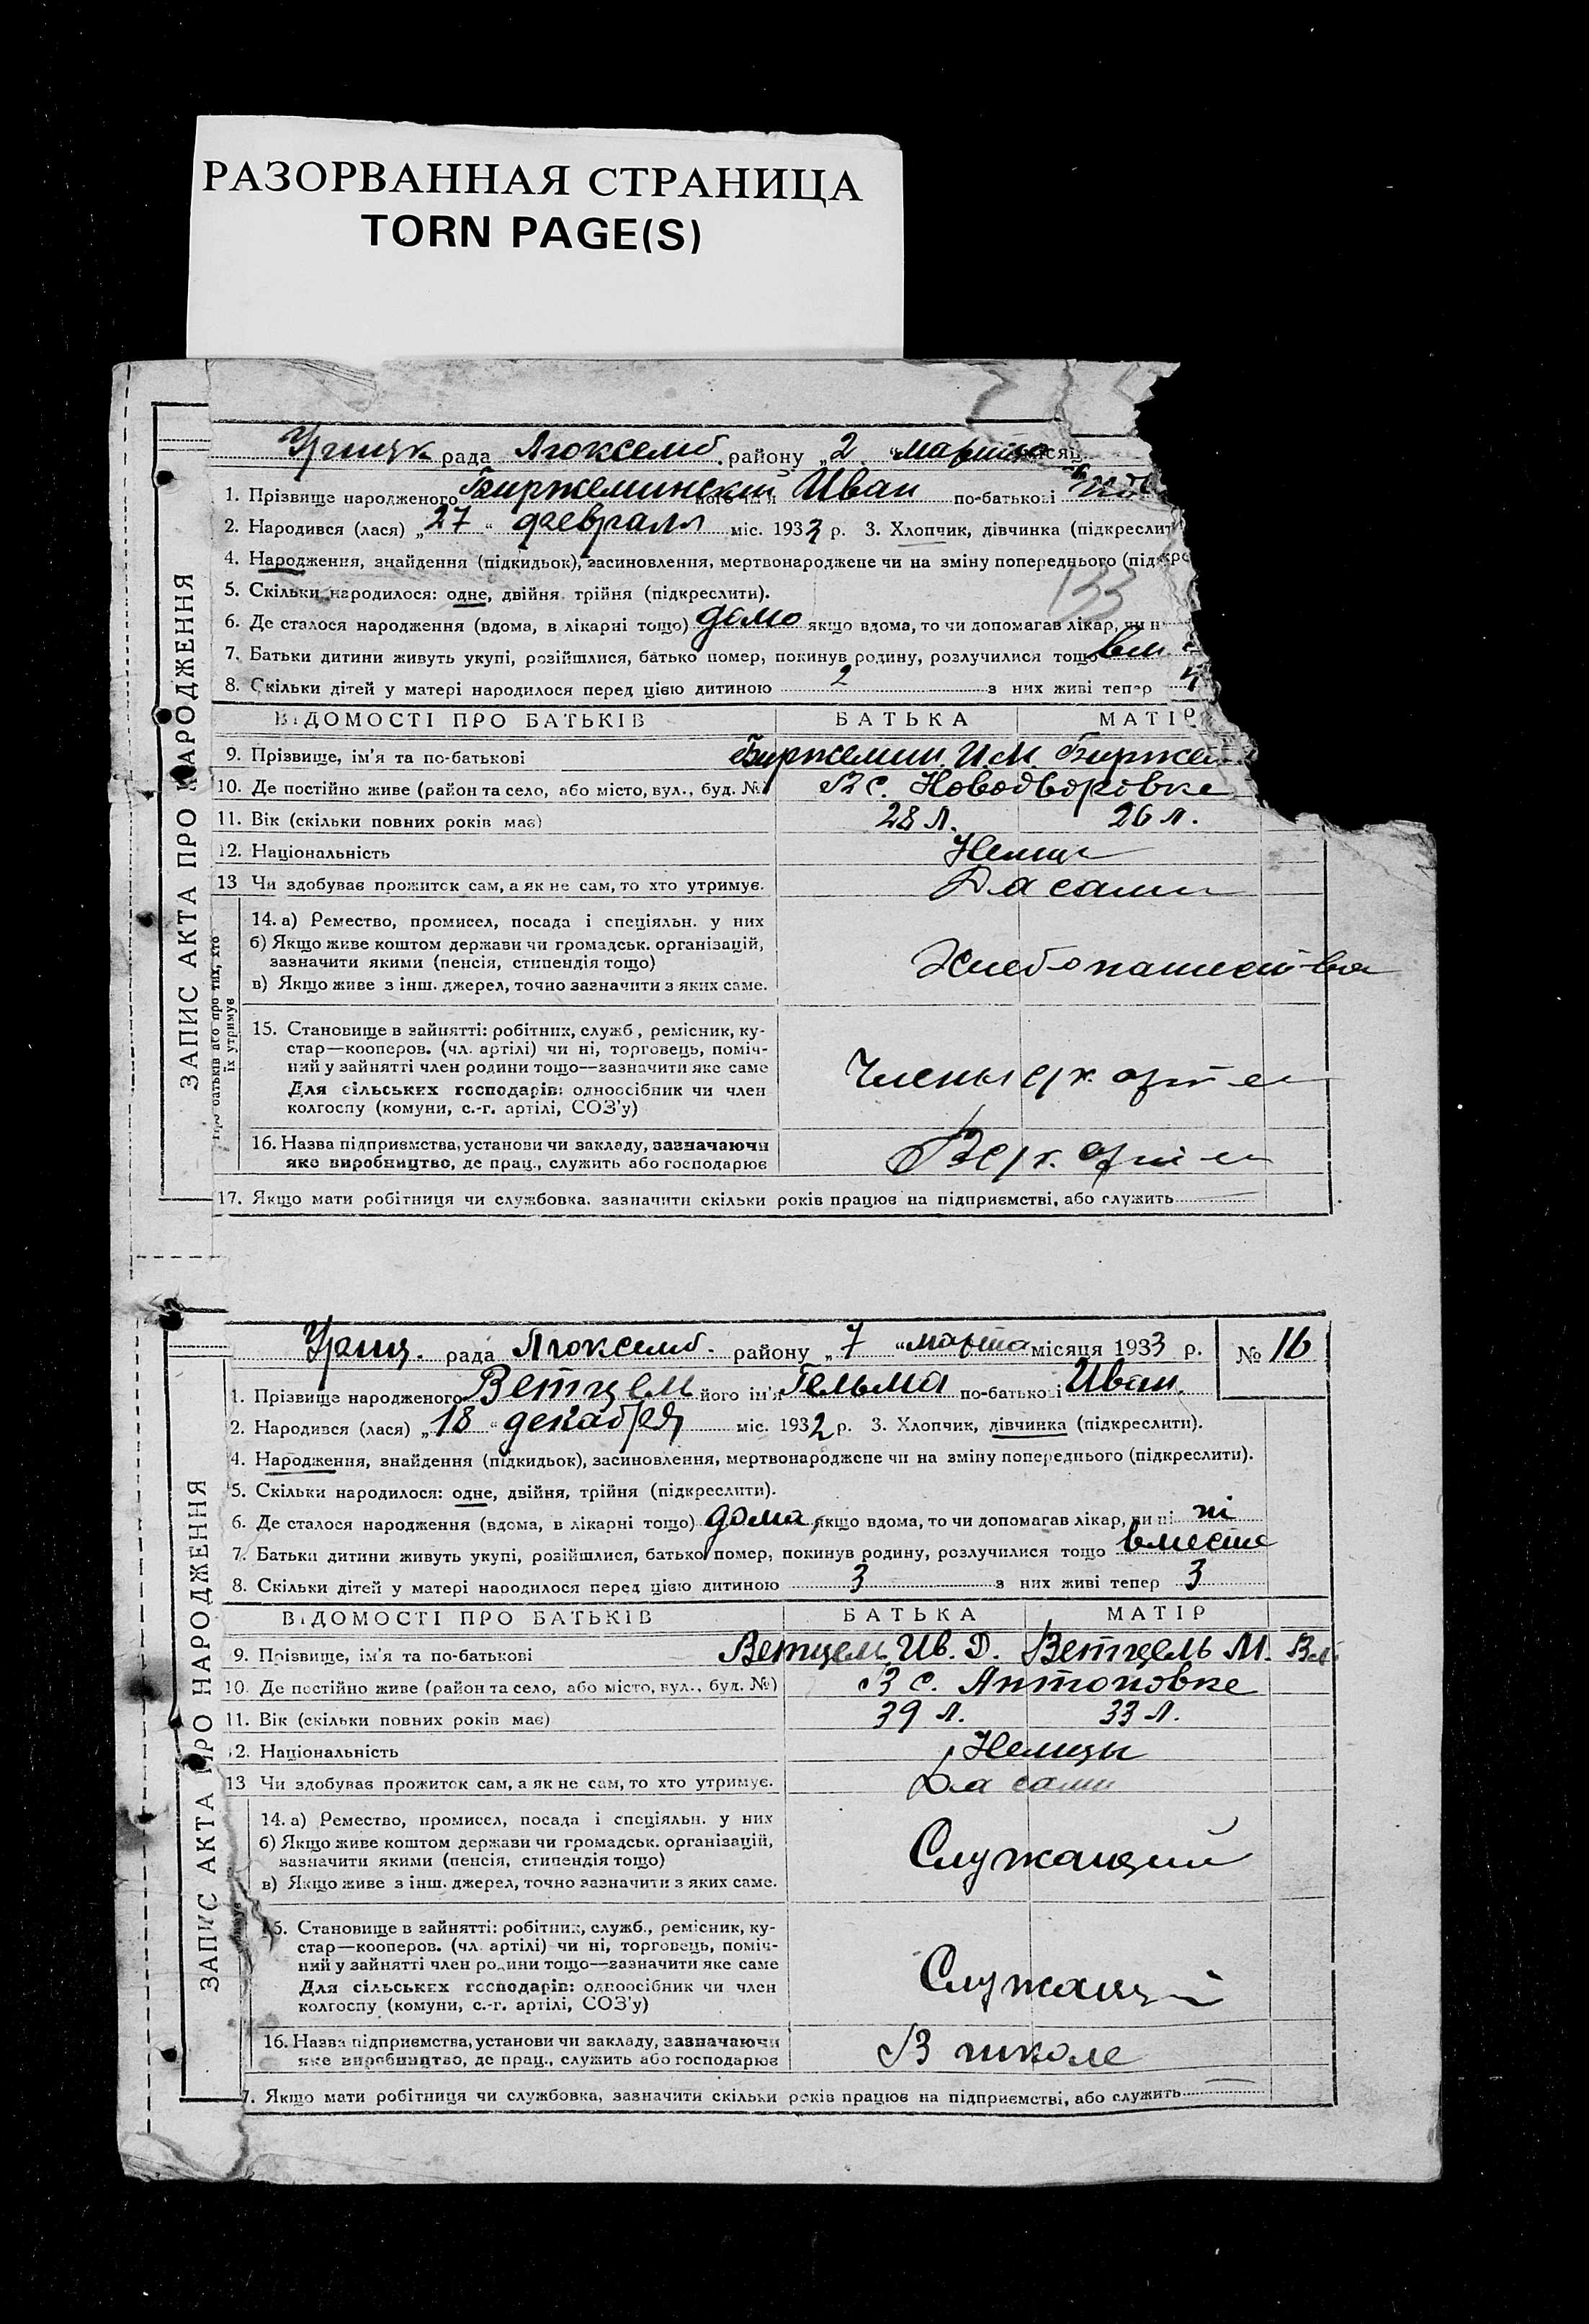 РАЗОРВАННАЯ СТРАНИЦА
TORN PAGE(S)
ЗАПИС АКТА ПРО НАРОДЖЕННЯ
рада району „2 “ марта
1. Прізвище народженого Биржеминский Иван по-батькові
2. Народився (лася) „27 “ февраля міс. 1933 р. 3. Хлопчик, дівчинка (підкреслит
4. Народження, знайдення (підкидьок), засиновлення, мертвонароджене чи на зміну попереднього (підкре
5. Скільки народилося: одне, двійня, трійня (підкреслити).
133
6. Де сталося народження (вдома, в лікарні тощо) дома якщо вдома, то чи допомагав лікар, чи н
7. Батьки дитини живуть укупі, розійшлися, батько помер, покинув родину, розлучилися тощо вм
8. Скільки дітей у матері народилося перед цією дитиною 2 з них живі тепер
ВІДОМОСТІ ПРО БАТЬКІВ БАТЬКА МАТІР
9. Прізвище, ім'я та по-батькові Биржемин. И.М. Биржем
10. Де постійно живе (район та село, або місто, вул., буд. № В с. Новодворовке
11. Вік (скільки повних років має) 28 л. 26 л.
12. Національність Немцы
13 Чи здобуває прожиток сам, а як не сам, то хто утримує. Да сами
Про батьків або про тих, хто їх утримує
14. а) Ремество, промисел, посада і спеціяльн. у них
б) Якщо живе коштом держави чи громадськ. організацій,
зазначити якими (пенсія, стипендія тощо)
в) Якщо живе з інш. джерел, точно зазначити з яких саме.
Хлебопашество
15. Становище в зайнятті: робітник, служб., ремісник, ку-
стар—кооперов. (чл. артілі) чи ні, торговець, поміч-
ний у зайнятті член родини тощо—зазначити яке саме
Для сільських господарів: одноосібник чи член
колгоспу (комуни, с.-г. артілі, СОЗ'у)
Члены с/х. артели
16. Назва підприємства, установи чи закладу, зазначаючи
яке виробництво, де прац., служить або господарює
В с/х. артели
17. Якщо мати робітниця чи службовка, зазначити скільки років працює на підприємстві, або служить
ЗАПИС АКТА ПРО НАРОДЖЕННЯ
рада району „7 “ марта місяця 1933 р. № 16
1. Прізвище народженого Ветцель його ім'я Гельма по-батькові Иван.
2. Народився (лася) „18 “ декабря міс. 1932 р. 3. Хлопчик, дівчинка (підкреслити).
4. Народження, знайдення (підкидьок), засиновлення, мертвонароджене чи на зміну попереднього (підкреслити).
5. Скільки народилося: одне, двійня, трійня (підкреслити).
6. Де сталося народження (вдома, в лікарні тощо) дома, якщо вдома, то чи допомагав лікар, чи ні ні
7. Батьки дитини живуть укупі, розійшлися, батько помер, покинув родину, розлучилися тощо вместе
8. Скільки дітей у матері народилося перед цією дитиною 3 з них живі тепер 3
ВІДОМОСТІ ПРО БАТЬКІВ БАТЬКА МАТІР
9. Прізвище, ім'я та по-батькові Ветцель Ив. Д. Ветцель М.
10. Де постійно живе (район та село, або місто, вул., буд. №) В с. Антоновке
11. Вік (скільки повних років має) 39 л. 33 л.
12. Національність Немцы
13 Чи здобуває прожиток сам, а як не сам, то хто утримує. Да сами
14. а) Ремество, промисел, посада і спеціяльн. у них
б) Якщо живе коштом держави чи громадськ. організацій,
зазначити якими (пенсія, стипендія тощо)
в) Якщо живе з інш. джерел, точно зазначити з яких саме.
Служащий
15. Становище в зайнятті: робітник, служб., ремісник, ку-
стар—кооперов. (чл. артілі) чи ні, торговець, поміч-
ний у зайнятті член родини тощо—зазначити яке саме
Для сільських господарів: одноосібник чи член
колгоспу (комуни, с.-г. артілі, СОЗ'у)
Служащий
16. Назва підприємства, установи чи закладу, зазначаючи
яке виробництво, де прац., служить або господарює
В школе
7. Якщо мати робітниця чи службовка, зазначити скільки років працює на підприємстві, або служить